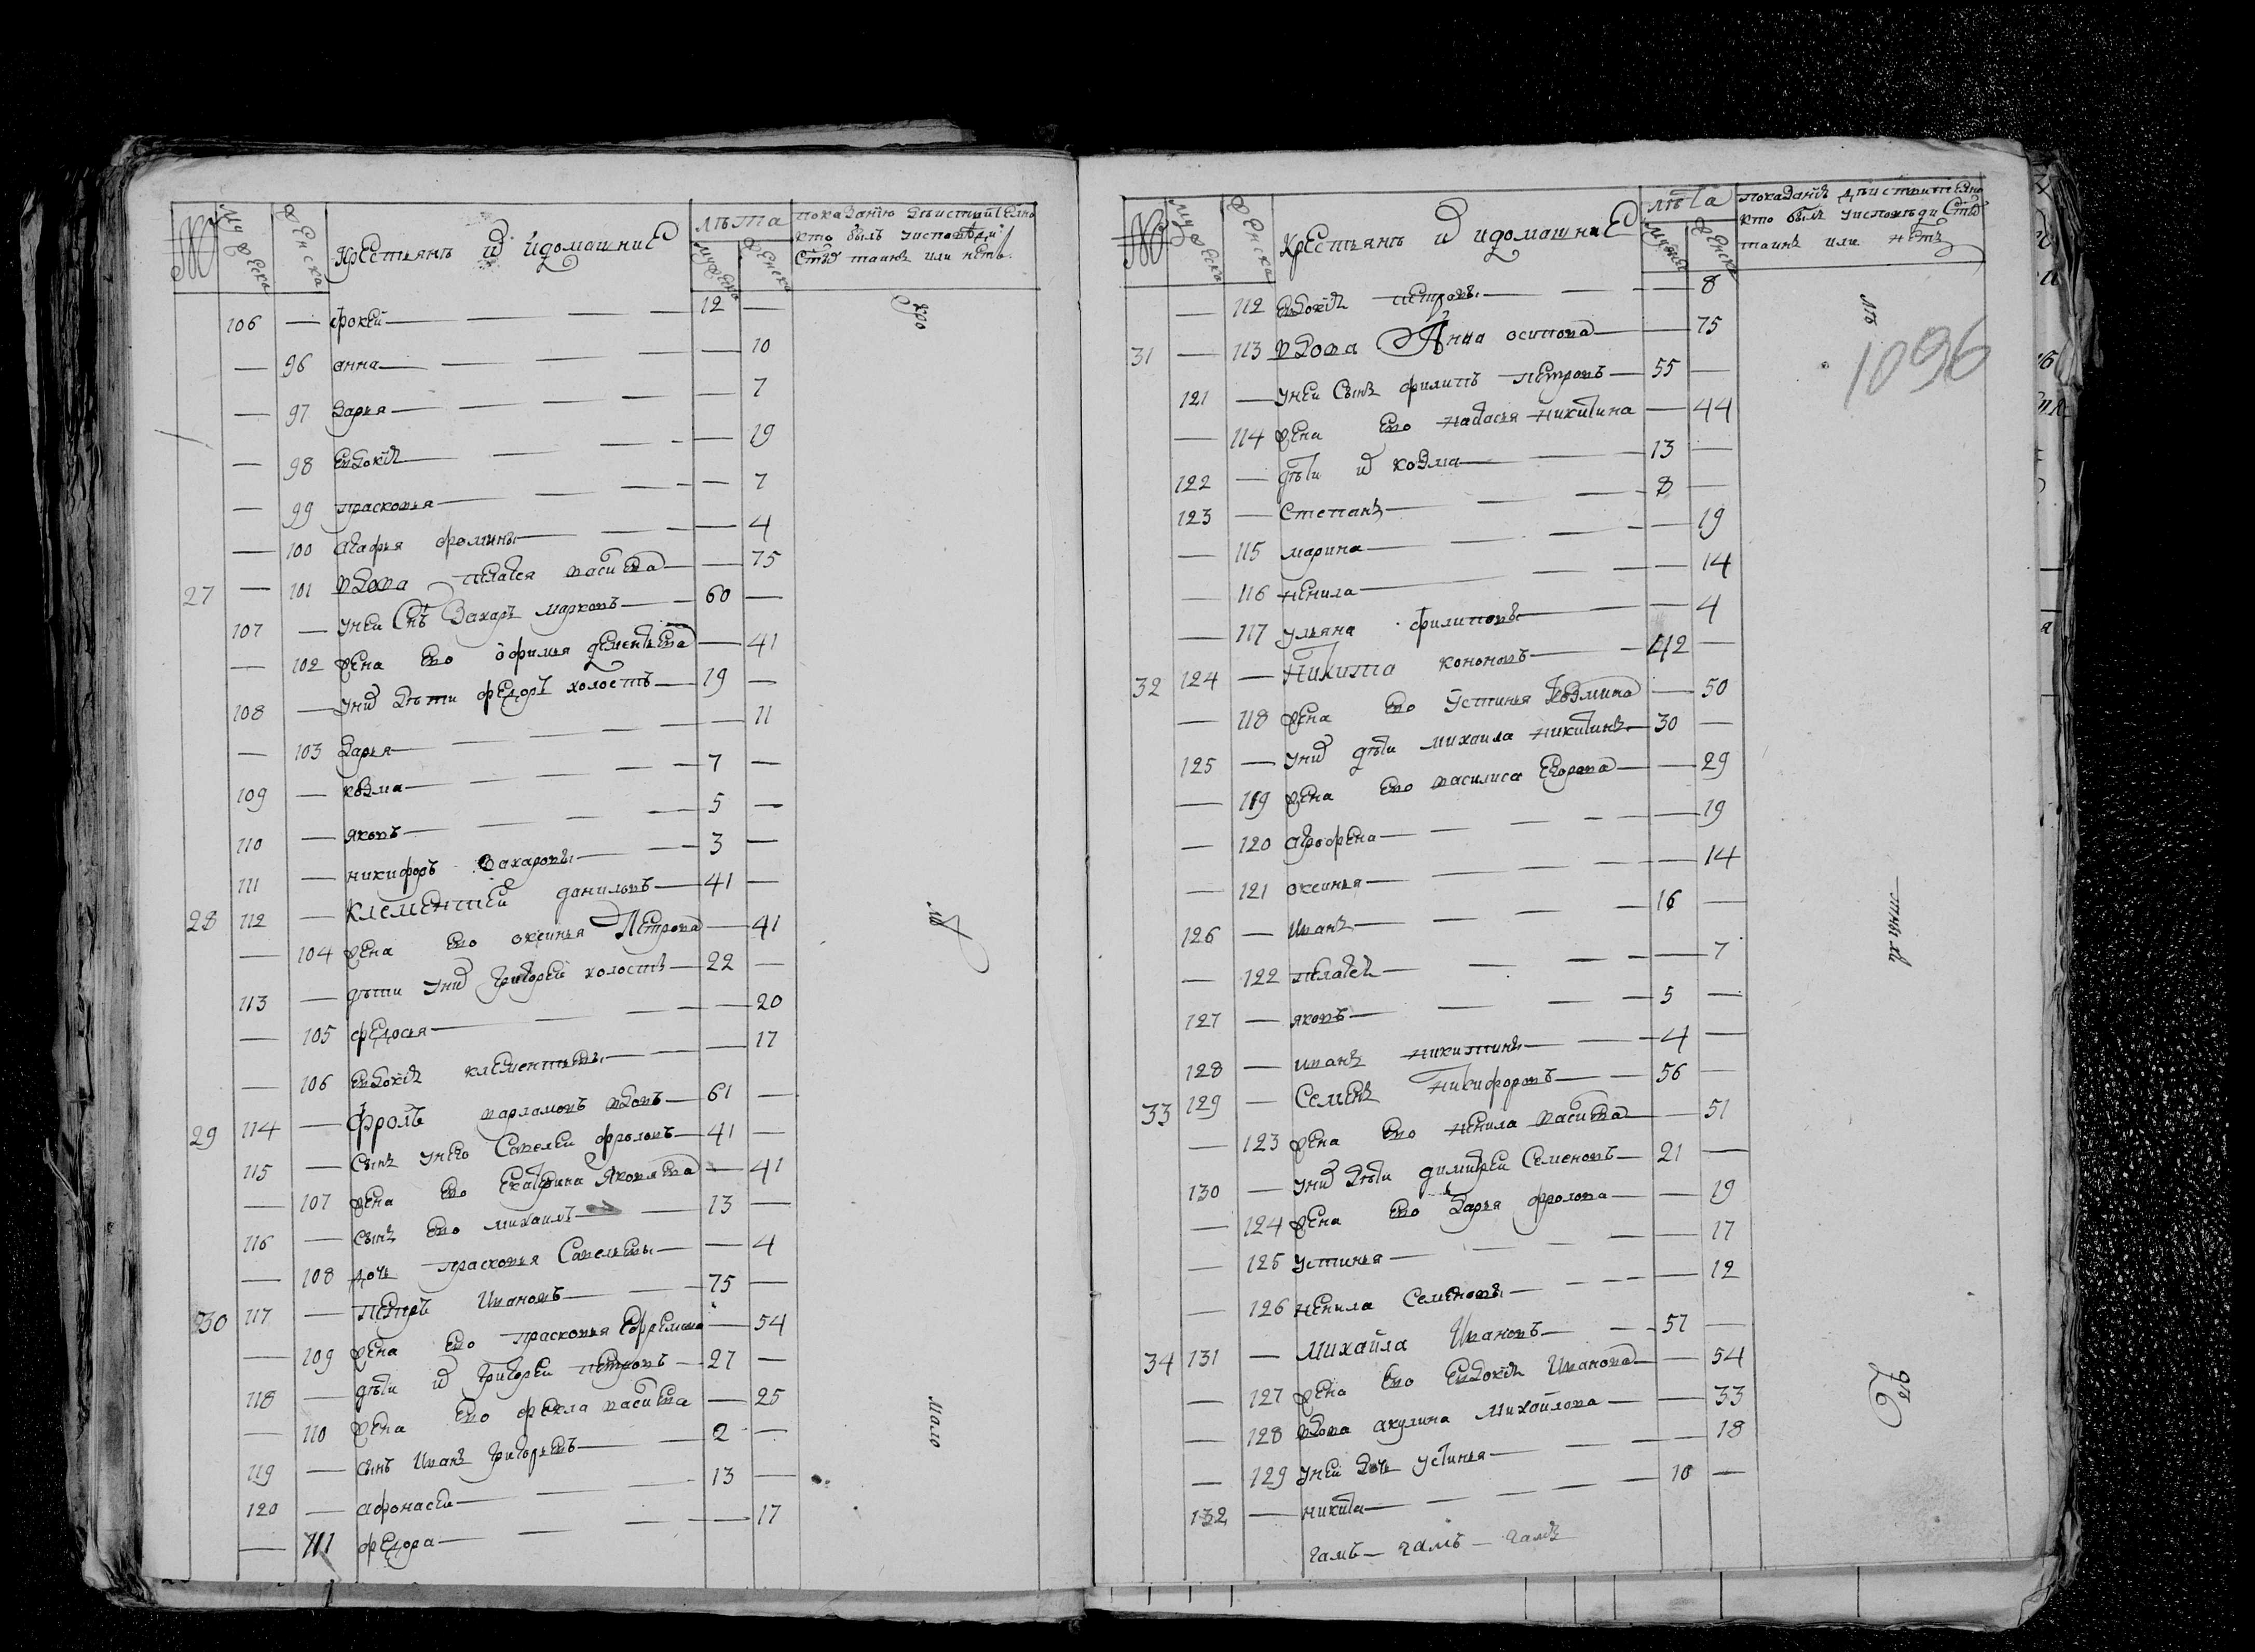 №
мужеска
женска
крестьянъ и ихъ домашние
лѣта
мужеска
женска
показанию действително
кто былъ у исповеди
Стыхъ таинъ или нетъ
106 — фокей — 12 —
— 96 анна — — 10
— 97 дарья — — 7
— 98 евдокия — — 19
— 99 прасковья — — 7
— 100 агафья фомины — — 4
27 — 101 вдова пелагея васильева — — 75
107 — у неи снъ Захаръ марковъ — 60 —
— 102 жена ево офимья дементьева — 41
108 — у них дѣти федоръ холостъ — 19 —
— 103 дарья — — 11
109 — козма — 7 —
110 — яковъ — 5 —
111 — никифоръ Захаровы — 3 —
28 112 — Клементей даниловъ — 41 —
— 104 жена ево оксинья Петрова — 41
113 — дѣти у них григорей холостъ — 22 —
— 105 федосья — — 20
— 106 евдокия клементьевы — — 17
29 114 — фролъ варламовъ вдовъ — 61 —
115 — сынъ у нево Савелеи фроловъ — 41 —
— 107 жена ево екатерина Яковлева — 41
116 — сынъ ево михаилъ — 13 —
— 108 дочь прасковья Савельевы — — 4
30 117 — петръ Ивановъ — 75 —
— 109 жена ево прасковья Ефремова — 54
118 — дѣти их григореи петровъ — 27 —
— 110 жена ево фекла васильева — 25
119 — сынъ Иванъ григорьевъ — 2 —
120 — афонасеи — 13 —
— 111 федора — — 17
мало
№
мужеска
женска
крестьянъ и ихъ домашние
лѣта
мужеска
женска
показания действително
кто былъ у исповеди Стыхъ
таинъ или нетъ
1096
— 112 евдокия петровы — — 8
31 — 113 вдова Анна осипова — — 75
121 — у неи сынъ филипъ петровъ — 55 —
— 114 жена ево настасья никитина — 44
122 — дѣти их козма — 13 —
123 — Степанъ — 8 —
— 115 марина — — 19
— 116 ненила — — 14
— 117 ульяна филиповы — — 4
32 124 — Никита кононовъ — 42 —
— 118 жена ево устинья козмина — 50
125 — у них дѣти михаила никитинъ — 30 —
— 119 жена ево василиса егорова — 29
— 120 агрофена — — 19
— 121 оксинья — — 14
126 — Иванъ — 16 —
— 122 пелагея — — 7
127 — яковъ — 5 —
128 — иванъ никитины — 4 —
33 129 — Семенъ никифоровъ — 56 —
— 123 жена ево ненила васильева — 51
130 — у них дѣти димитреи Семеновъ — 21 —
— 124 жена ево дарья фролова — 19
— 125 устинья — — 17
— 126 ненила Семеновы — — 12
34 131 — Михайла Ивановъ — 57 —
— 127 жена ево евдокия Иванова — 54
— 128 вдова акулина Михайлова — — 33
— 129 у неи дочь устинья — — 18
132 — никита — 10 —